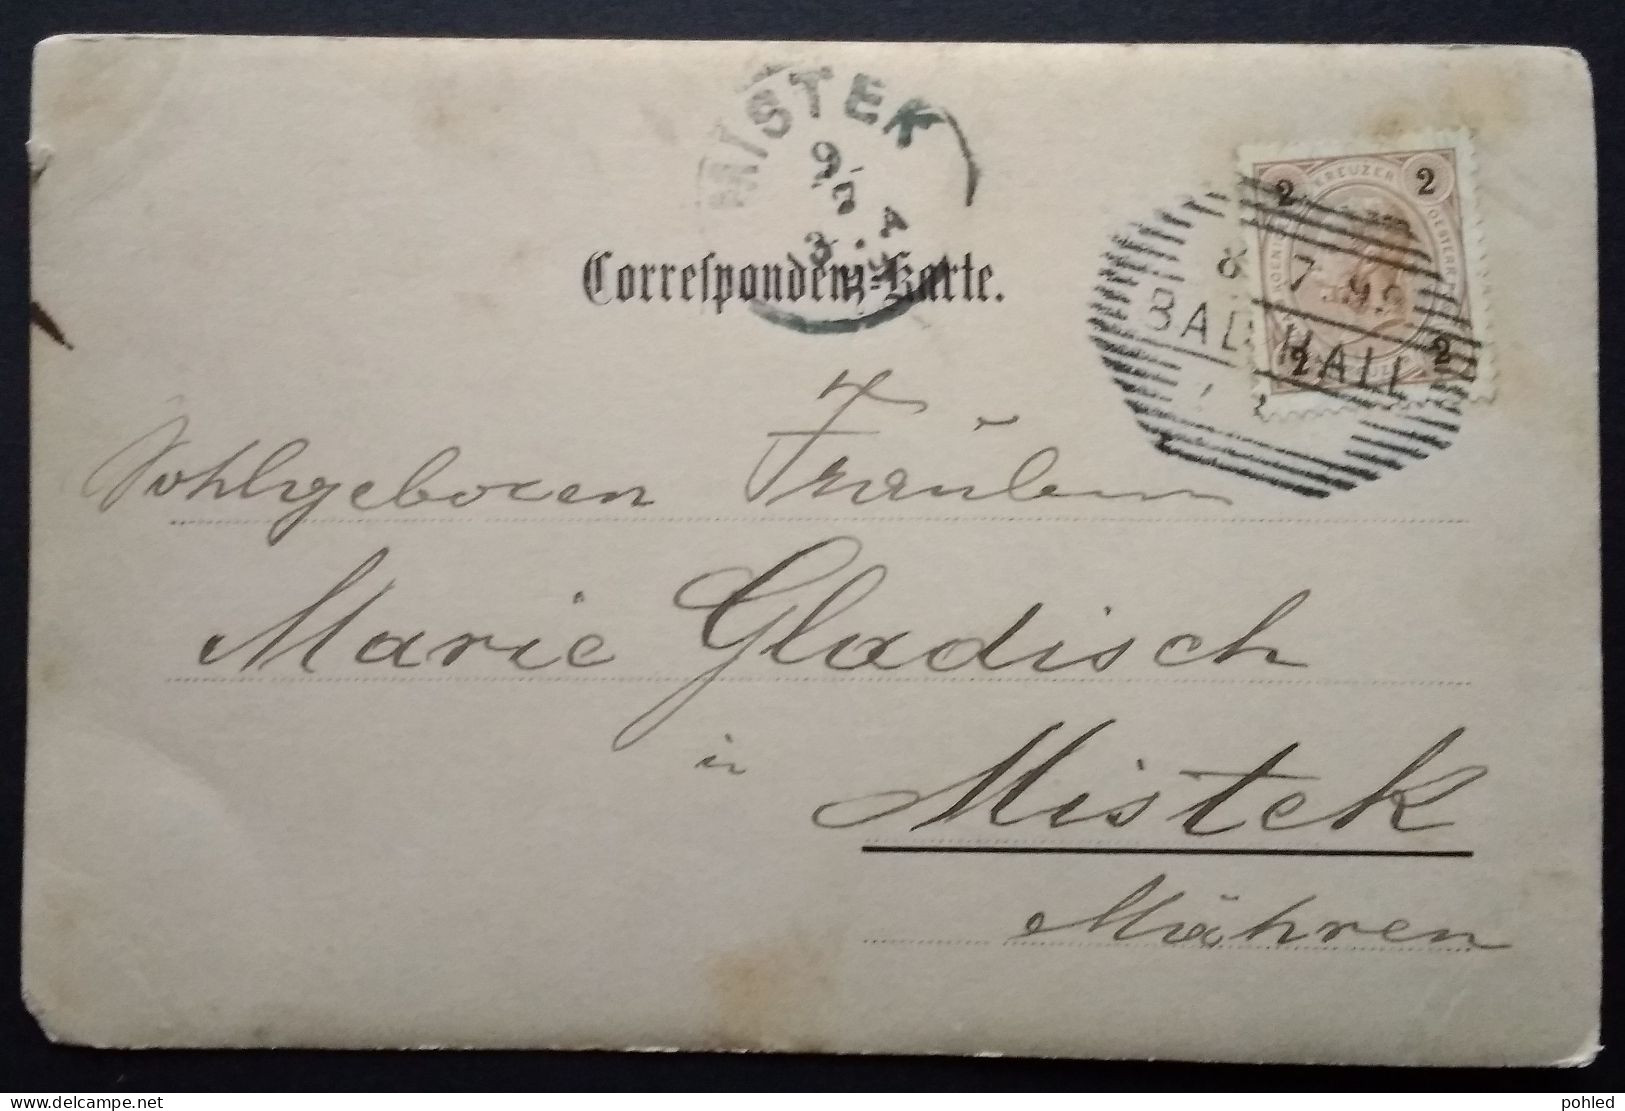 MISTEK
9
3
A
2 KREUZER 2
8 7 99
BAD HALL
2 2
Correspondenz-Karte.
Wohlgeboren Fräulein
Marie Gladisch
in Mistek
Mähren
delcampe.net
pohled